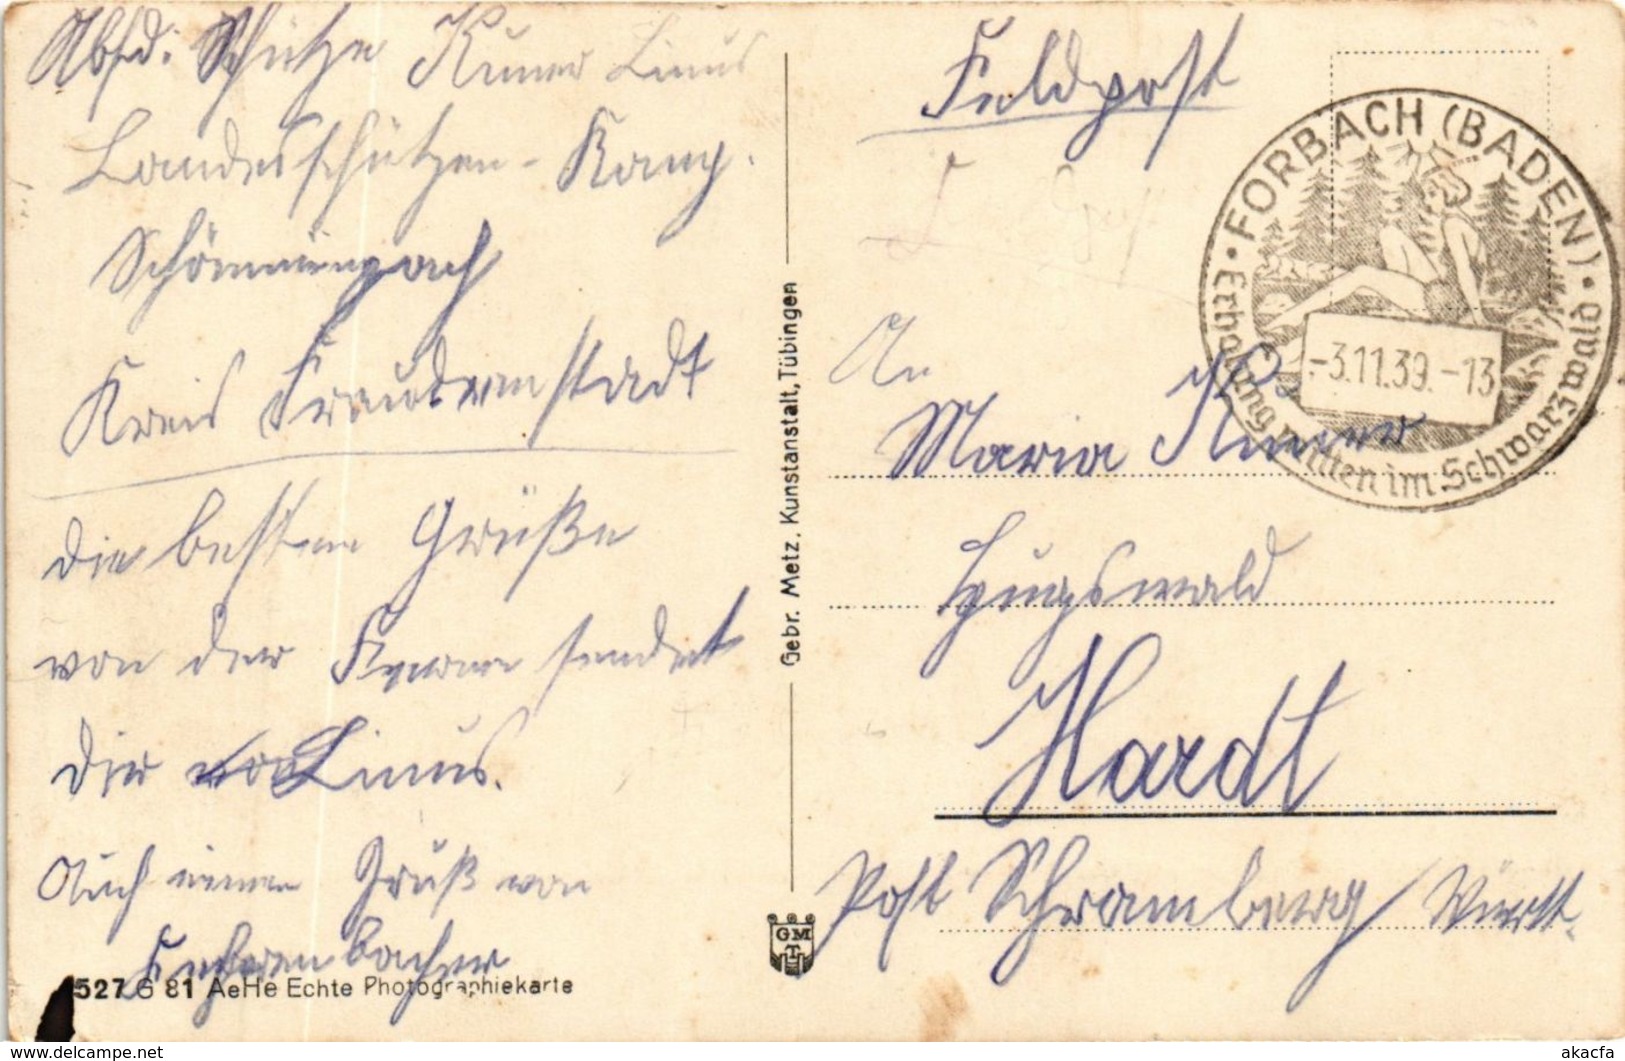 Absd: Schütze Kuner Linus
Landesschützen-Komp.
Schönmünzach
Kreis Freudenstadt
die besten Grüße
von der sendet
dir Linus.
Auch einen Gruß von
Fehrenbacher
527 G 81 AeHe Echte Photographiekarte
Gebr. Metz, Kunstanstalt, Tübingen
GM
T
Feldpost
FORBACH (BADEN)
-3.11.39.-13
Erholung mitten im Schwarzwald
An
Maria Kuner
Hardt
Post Schramberg / Württ.
akacfa